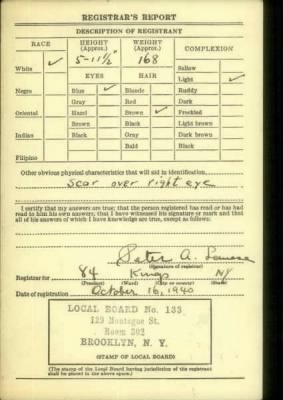 REGISTRAR'S REPORT
DESCRIPTION OF REGISTRANT
RACE HEIGHT (Approx.) WEIGHT (Approx.) COMPLEXION
White ✓ 5-11½" 168 Sallow
EYES HAIR Light ✓
Negro Blue ✓ Blonde Ruddy
Gray Red Dark
Oriental Hazel Brown ✓ Freckled
Brown Black Light brown
Indian Black Gray Dark brown
Bald Black
Filipino
Other obvious physical characteristics that will aid in identification
Scar over right eye
I certify that my answers are true; that the person registered has read or has had
read to him his own answers; that I have witnessed his signature or mark and that
all of his answers of which I have knowledge are true, except as follows:
Peter A.
(Signature of registrar)
Registrar for 84 Kings NY
(Precinct) (Ward) (City or county) (State)
Date of registration October 16, 1940
LOCAL BOARD No. 133
129 Montague St.
Room 302
BROOKLYN, N. Y.
(STAMP OF LOCAL BOARD)
(The stamp of the Local Board having jurisdiction of the registrant
shall be placed in the above space.)